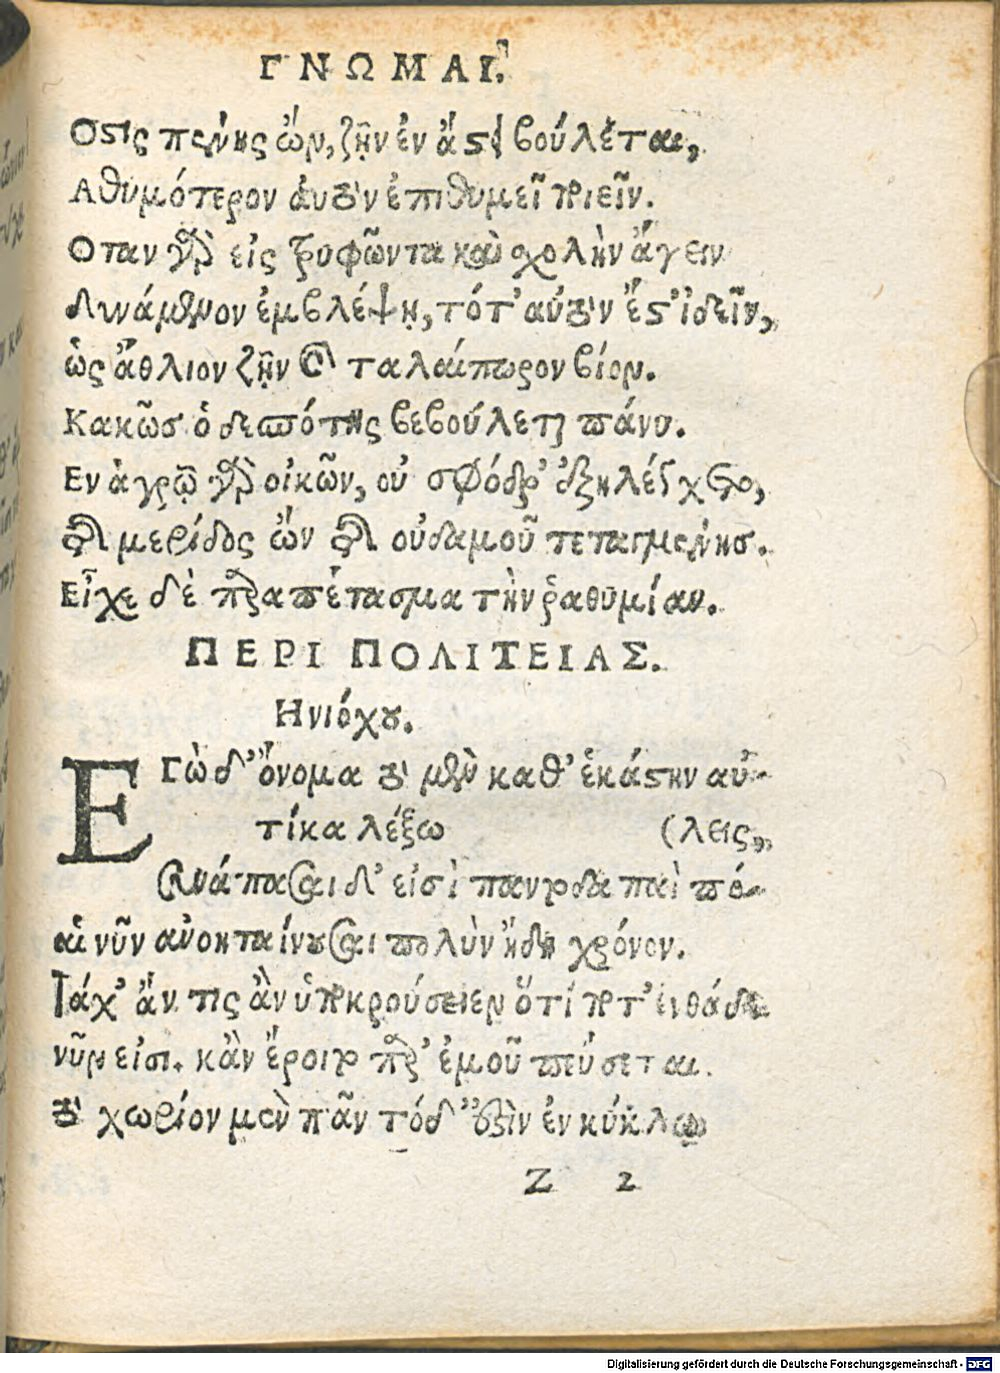 ΓΝΩΜΑΙ.
Οστις πένης ὤν, ζῇν ἐν ἄστει βούλεται,
Αθυμότερον ἀυτὸν ἐπιθυμεῖ ποιεῖν.
Οταν γὰρ εἰς τρυφῶντα καὶ χολὴν ἄγειν
δυνάμενον ἐμβλέψῃ, τότ' αὐτὸν ἔστ' ἰδεῖν,
ὡς ἄθλιον ζῇν καὶ ταλαίπωρον βίον.
Κακῶσ ὁ δεσπότης βεβούλευται πάνυ.
Εν ἀγρῷ γὰρ οἰκῶν, οὐ σφόδρ' ἐξηλέγχετο,
τῆς μερίδος ὢν τῆς οὐδαμοῦ τεταγμένησ.
Εἶχε δὲ παραπέτασμα τὴν ῥαθυμίαν.
ΠΕΡΙ ΠΟΛΙΤΕΙΑΣ.
Ηνιόχου.
ΕΓὼ δ' ὄνομα τὸ μὲν καθ' ἑκάστην αὐ-
τίκα λέξω (λεις,
συνάπασαι δ' εἰσὶ παντοδαπαὶ πό-
αἱ νῦν ἀνοηταίνουσαι πολὺν ἤδη χρόνον.
Τάχ' ἄν τις ἂν ὑποκρούσειεν ὅτί ποτ' ἐνθάδε
νῦν εἰσι. κἂν ἔροιτο παρ' ἐμοῦ πεύσεται.
τὸ χωρίον μὲν πᾶν τόδ' ἐστὶν ἐν κύκλῳ
Z 2
Digitalisierung gefördert durch die Deutsche Forschungsgemeinschaft - DFG